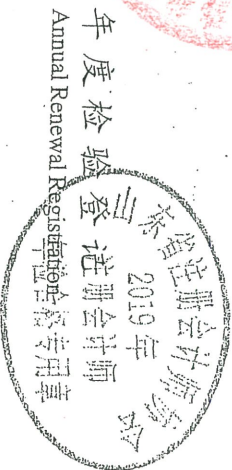 年度检验登记
Annual Renewal Registration
东省注册会计师协会
2019年
注册会计师
年检合格专用章